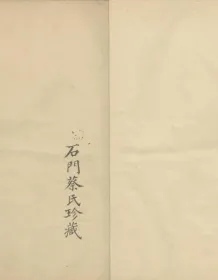 石門蔡氏珍藏